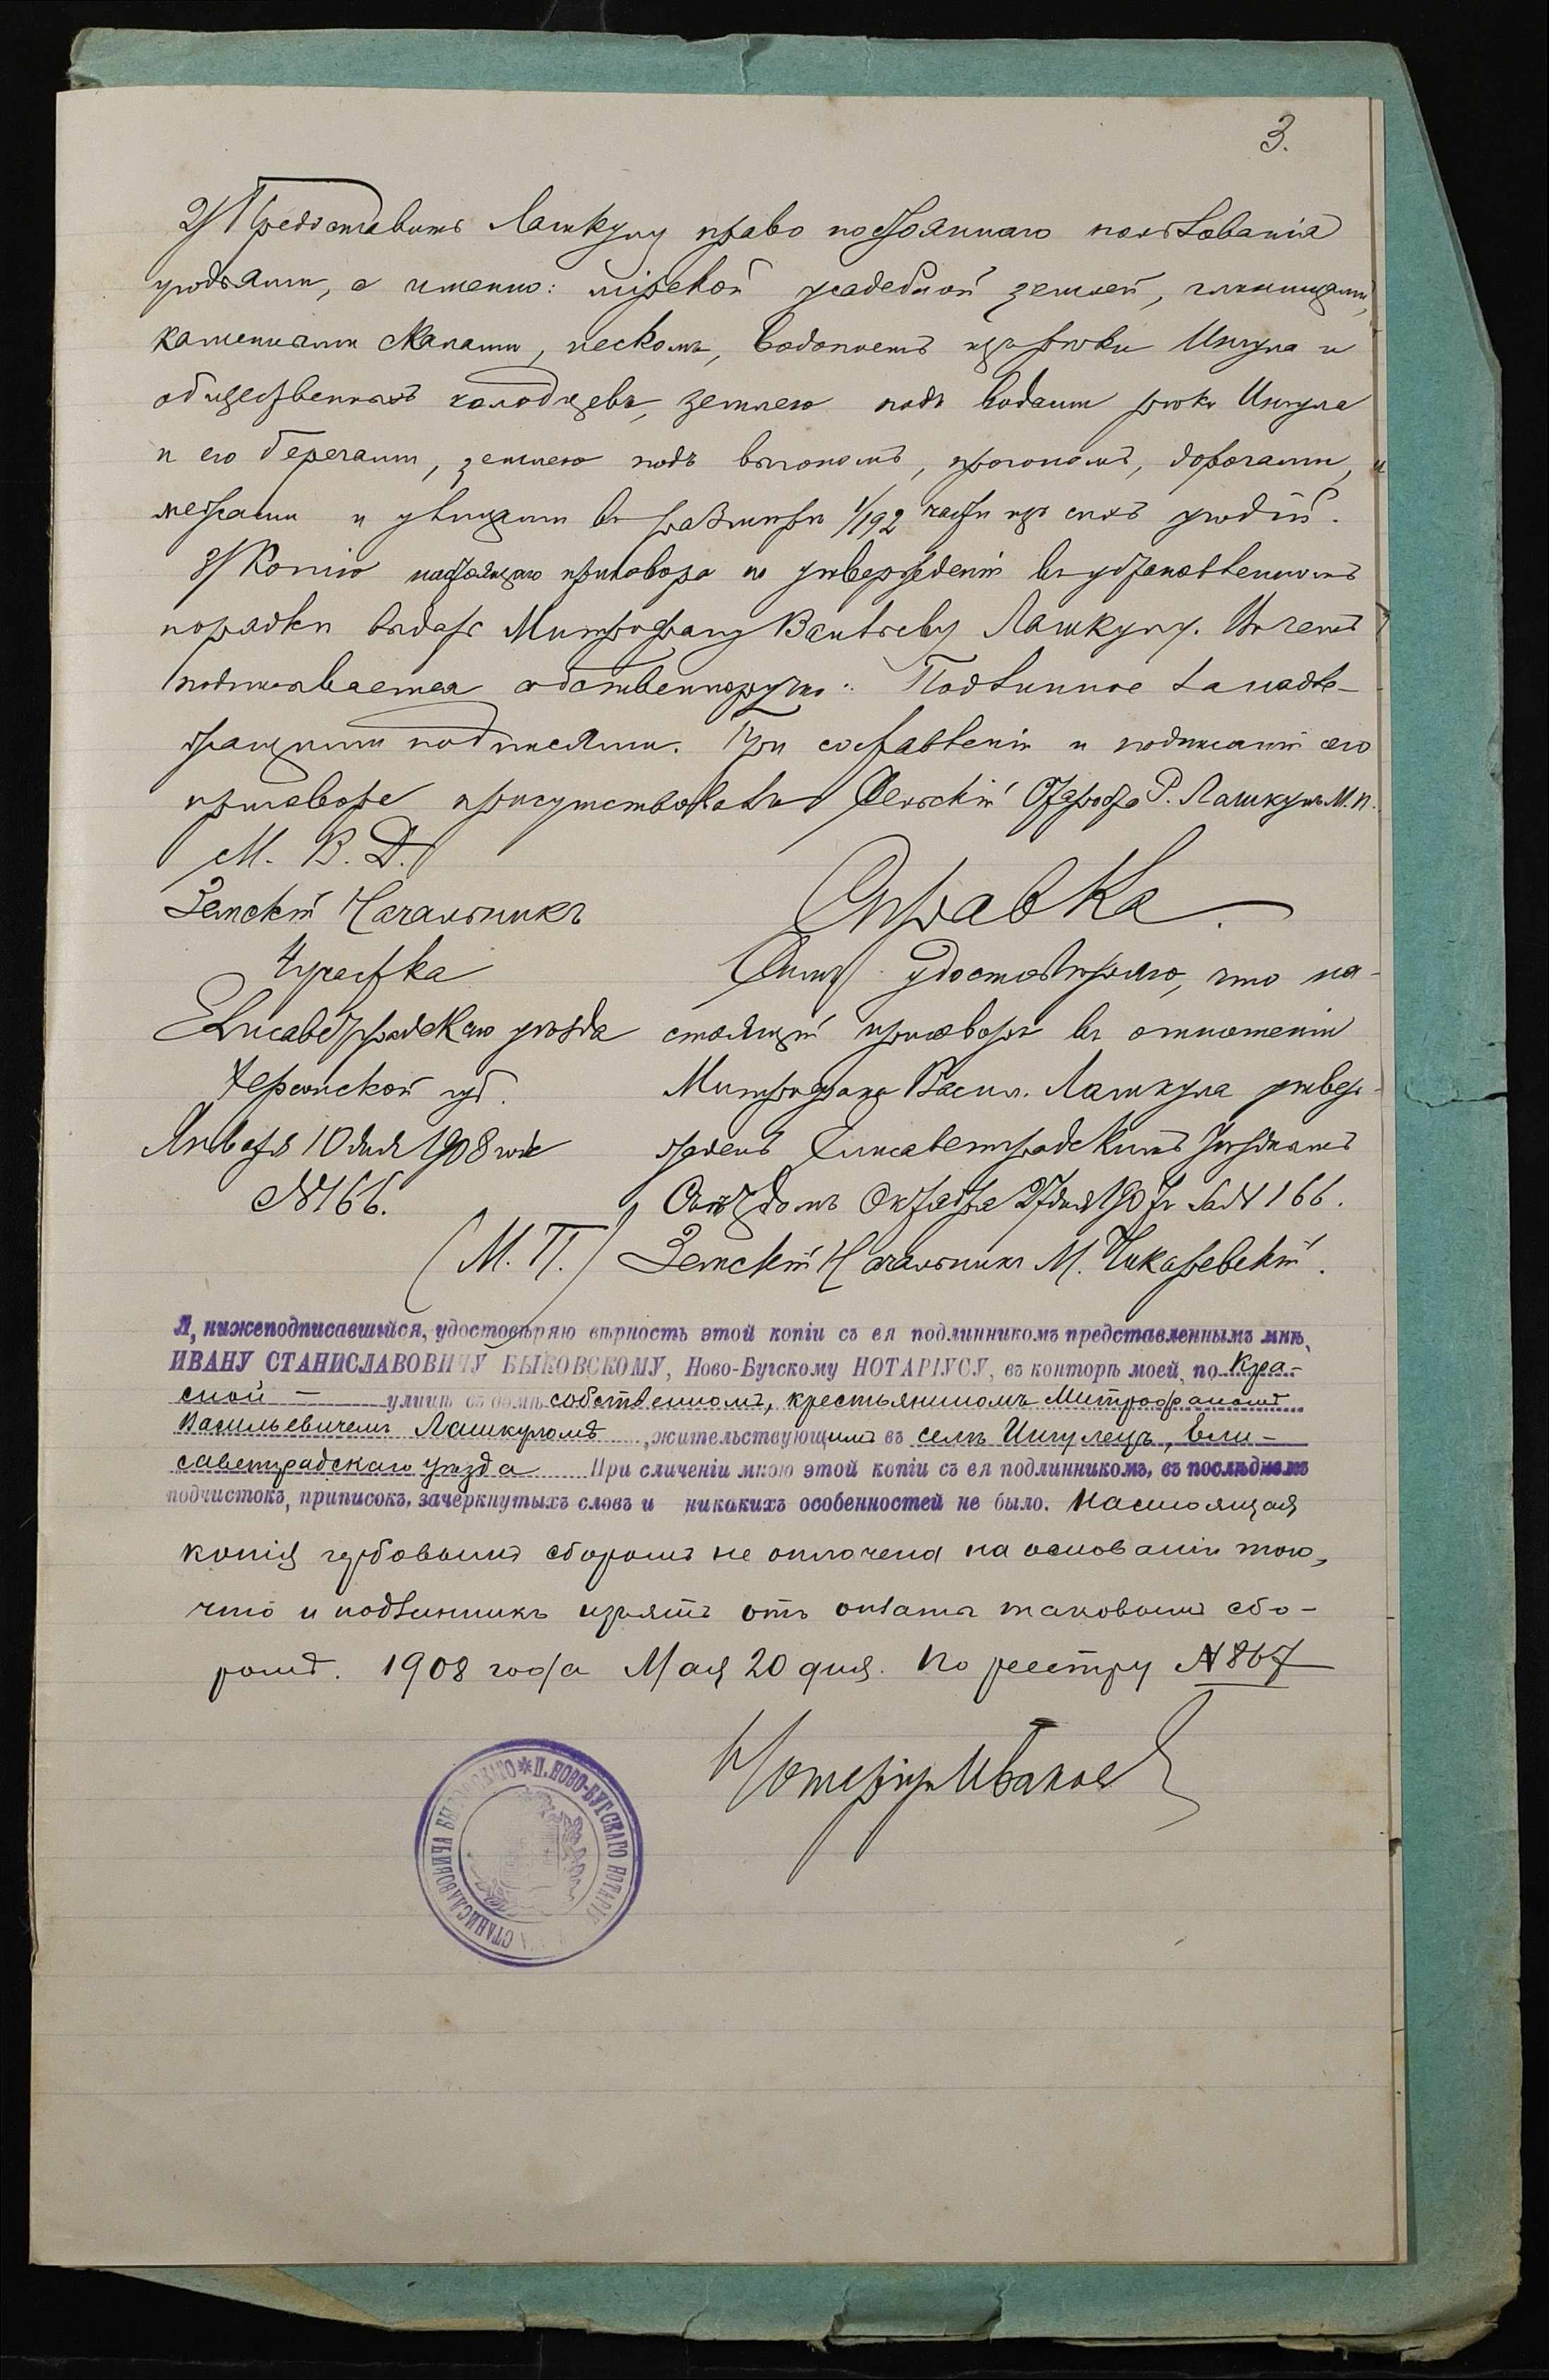 3.
2/ Предоставить Лашкулу право постояннаго пользованія
угодьями, а именно: мірской усадебной землей, глинищами,
каменными скалами, пескомъ, водопоемъ изъ рѣки Ингула и
общественныхъ колодцевъ, землею подъ водами рѣки Ингула
и его берегами, землею подъ выгономъ, прогономъ, дорогами, и
межами и улицами въ размѣрѣ 1/192 части изъ сихъ угодій.
3/ Копію настоящаго приговора по утвержденіи въ установленномъ
порядкѣ выдать Митрофану Васильеву Лашкулу. Въ чемъ
подписываемся собственноручно". Подлинное за надле-
жащими подписями. При составленіи и подписаніи сего
приговора присутствовалъ Сельскій Староста Р. Лашкулъ М. п.
М. В. Д.
Земскій Начальникъ
4 участка
Елисаветградскаго уѣзда
Херсонской губ.
Января 10 дня 1908 года
№ 166.
Справка.
Симъ удостовѣряю, что на-
стоящій приговоръ въ отношеніи
Митрофана Васил. Лашкула утвер-
жденъ Елисаветградскимъ Уѣзднымъ
Съѣздомъ Октября 27 дня 1907 г. за № 166.
(М. П.) Земскій Начальникъ М.
Я, нижеподписавшійся, удостовѣряю вѣрность этой копіи съ ея подлинникомъ представленнымъ мнѣ,
ИВАНУ СТАНИСЛАВОВИЧУ БЫКОВСКОМУ, Ново-Бугскому НОТАРІУСУ, въ конторѣ моей, по Кра-
сной — улицѣ въ домѣ собственномъ, крестьяниномъ Митрофаномъ
Васильевичемъ Лашкуломъ, жительствующимъ въ селѣ Ингулецъ, Ели-
саветградскаго уѣзда При сличеніи мною этой копіи съ ея подлинникомъ, въ послѣднемъ
подчистокъ, приписокъ, зачеркнутыхъ словъ и никакихъ особенностей не было. Настоящая
копія гербовымъ сборомъ не оплочена на основаніи того,
что и подлинникъ изъятъ отъ оплаты таковымъ сбо-
ромъ. 1908 года Мая 20 дня. По реестру № 867
Нотаріусъ
* П. НОВО-БУГСКАГО НОТАРІУ СТАНИСЛАВОВИЧА БЫКОВСКАГО